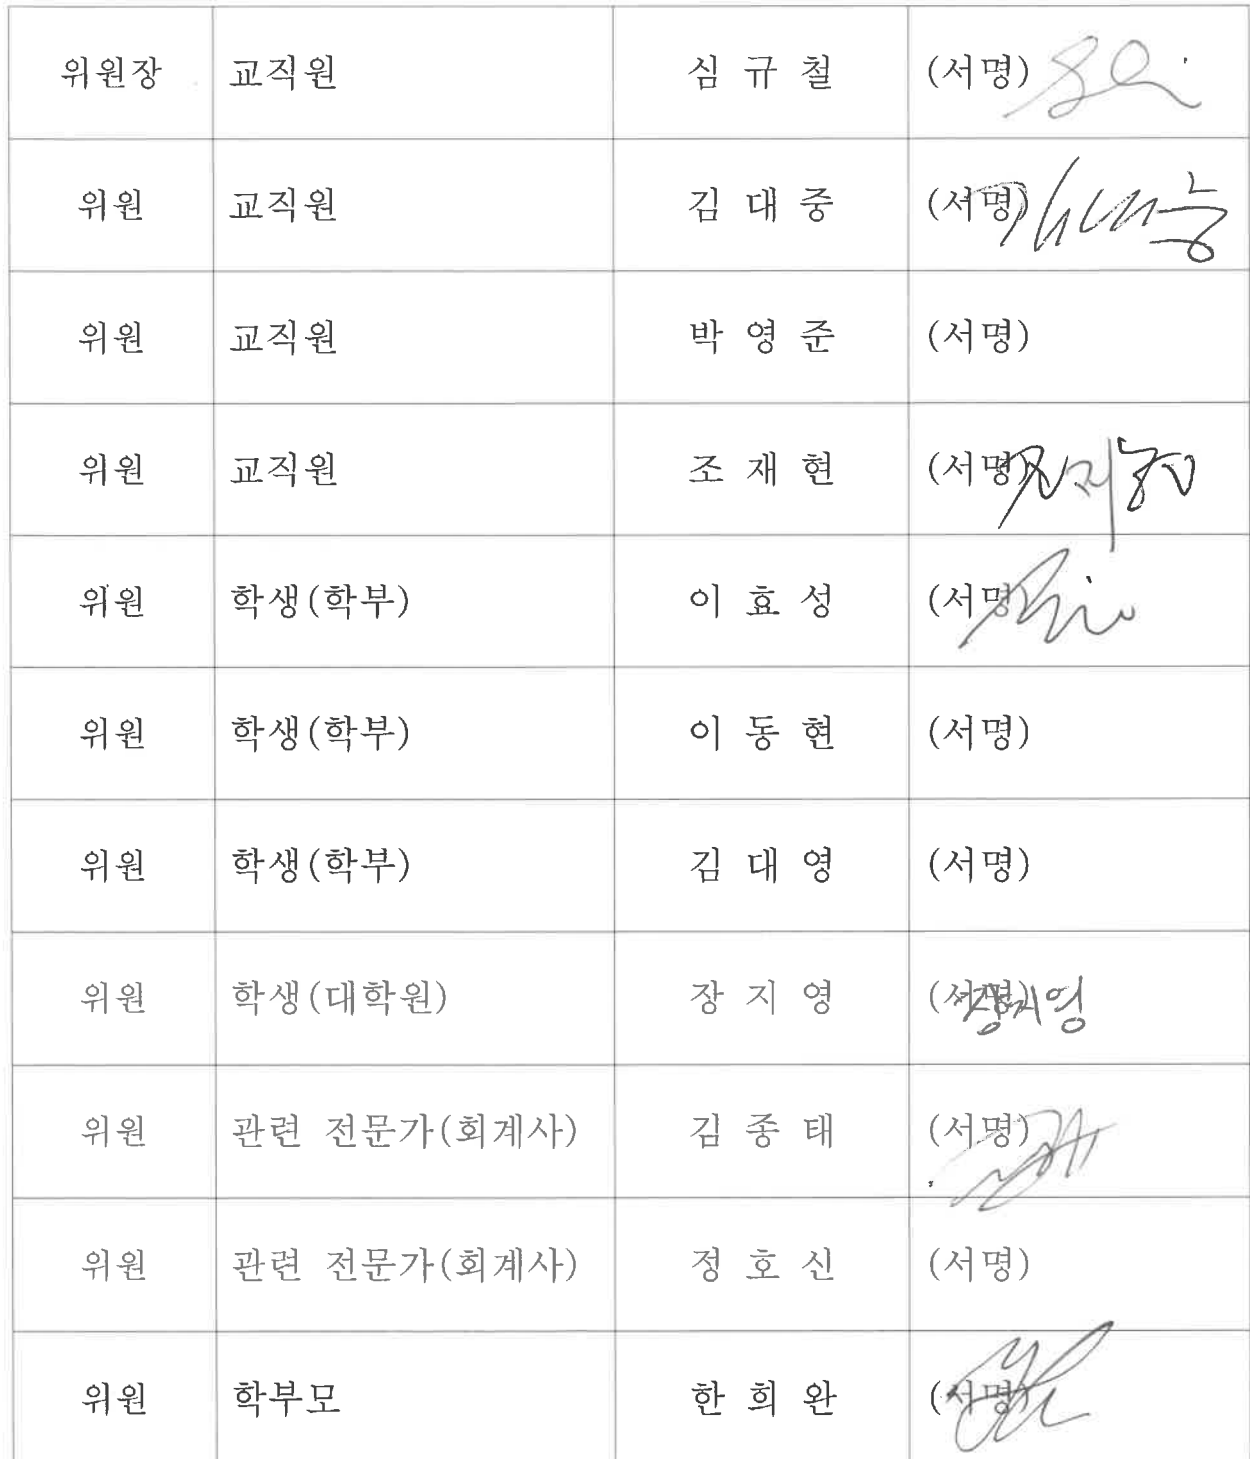 위원장 교직원 심 규 철 (서명)
위원 교직원 김 대 중 (서명) 김대중
위원 교직원 박 영 준 (서명)
위원 교직원 조 재 현 (서명) 조재현
위원 학생(학부) 이 효 성 (서명)
위원 학생(학부) 이 동 현 (서명)
위원 학생(학부) 김 대 영 (서명)
위원 학생(대학원) 장 지 영 (서명) 장지영
위원 관련 전문가(회계사) 김 종 태 (서명)
위원 관련 전문가(회계사) 정 호 신 (서명)
위원 학부모 한 희 완 (서명)